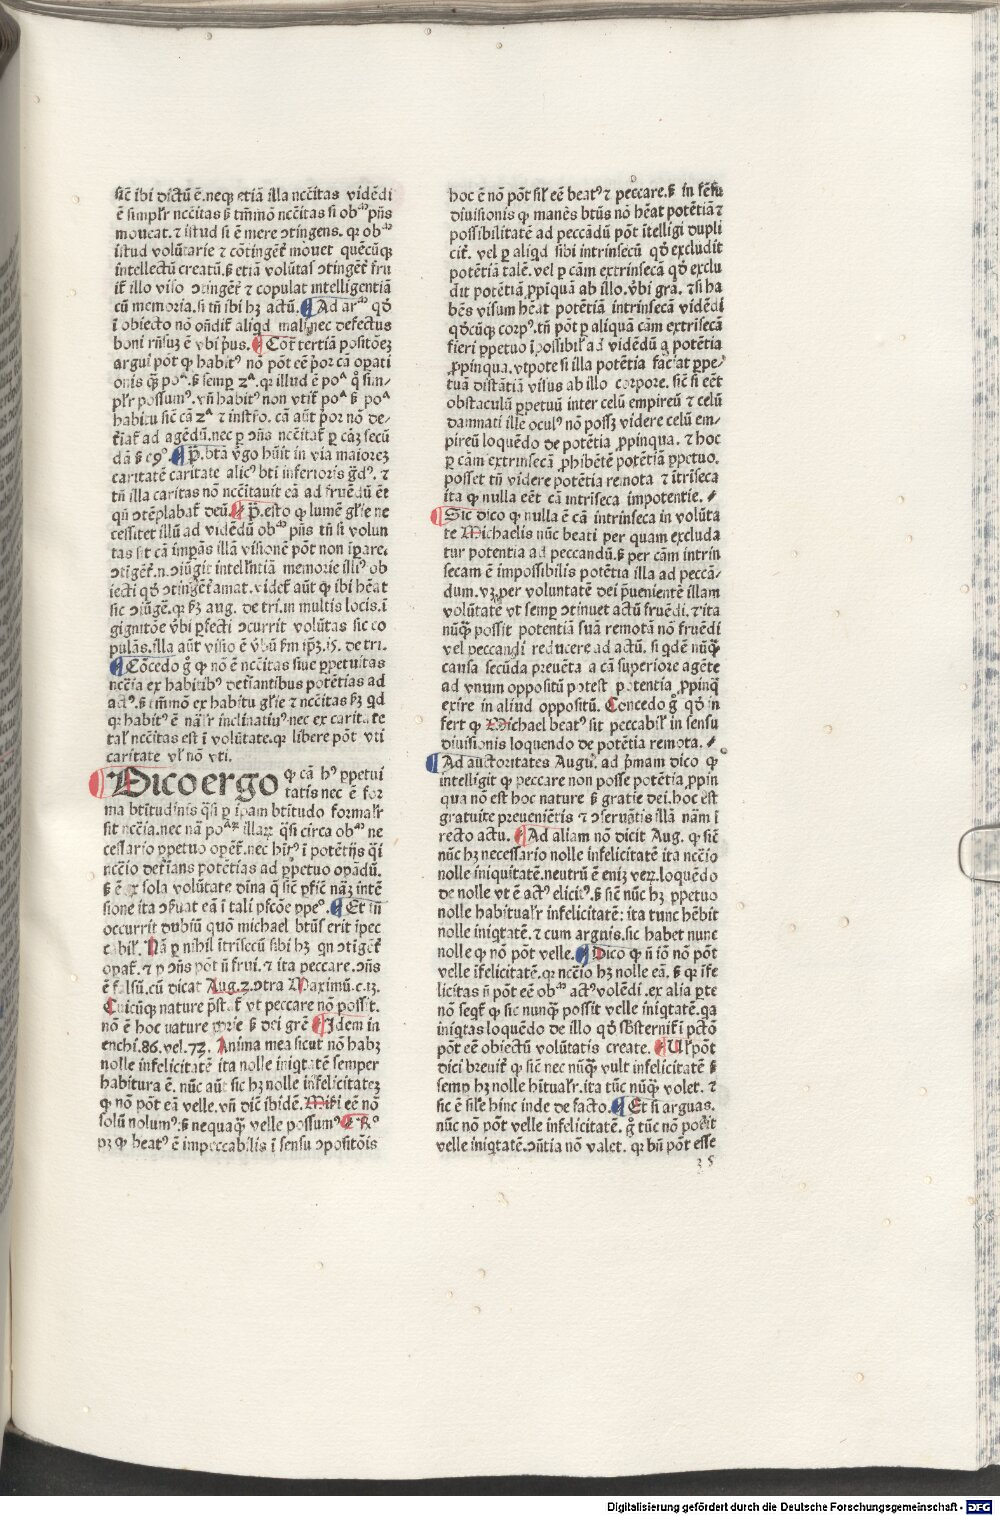 sic̄ ibi dictū ē.neq; etiā illa nccītas vidēdi
ē simpl'r nccītas ꝫ tm̄mō nccītas si obᵐ pn̄s
moueat.⁊ istud si ē mere ↄtingens. qꝛ obᵐ
istud volūtarie ⁊ cōtingēt̄ mouet quēcūq;
intellectū creatū.ꝫ etiā volūtas ↄtingēt̄ fru
it̄ illo viso ↄtingēt̄ ⁊ copulat intelligentiā
cū memoria.si tn̄ ibi hꝫ actū. Ad arᵐ qð
ī obiecto nō on̄dit̄ aliqd mali nec defectus
boni rn̄suꝫ ē vbi pͥus. Cōt̄ tertiā positōeꝫ
argui pōt ꝙ habitꝰ nō pōt eē pͥor cā opati
onis qꝫ poᵃ.ꝫ semp 2ᵃ.qꝛ illud ē poᵃ q° sim-
pl'r possumꝰ.vn̄ habitꝰ non vtit̄ poᵃ ꝫ poᵃ
habitu sic̄ cā 2ᵃ ⁊ instr̄o. cā aūt pͥor nō de-
t̄iat̄ ad agēdū.nec ꝑ ↄn̄s nccītat̄ ꝑ cāꝫ secū
dā ꝫ eꝯ. P̄.bt̄a vgͦo hūit in via maiorez
caritatē caritate alicꝰ bti inferioris gͣdꝰ. ⁊
tn̄ illa caritas nō nccītauit eā ad fruēdū ēt
qn̄ ↄtēplabat̄ deū. P̄.esto ꝙ lumē gl'ie ne
cessitet illū ad vidēdū obᵐ pn̄s tn̄ si volun
tas sit cā impās illā visionē pōt non īpare.
ↄtigēt̄.n.ↄiūgit intell'ntiā memorie illiꝰ ob
iecti qð ↄtingēt̄ amat. videt̄ aūt ꝙ ibi hēat
sic ↄiūgē.qꝛ ẜꝫ aug. de tri.in multis locis.ī
gignitōe vbi pfecti ↄcurrit volūtas sic co
pulās.illa aūt visio ē vbū ẜm ip̄ꝫ.15. de tri.
Cōcedo gͦ ꝙ nō ē nccītas siue ꝑpetuitas
nccīa ex habitibꝰ det̄iantibus potētias ad
actꝰ.ꝫ tm̄mō ex habitu gl'ie ⁊ nccītas ẜꝫ qd
qꝛ habitꝰ ē nāl'r inclinatiuꝰ nec ex caritate
tal' nccītas est ī volūtate.qꝛ libere pōt vti
caritate vl' nō vti.
Dico ergo ꝙ cā hꝰ ꝑpetui
tatis nec ē for
ma btītudinis qͣsi ꝑ īpam btītudo formal'r
sit nccīa.nec nā poᵃꝝ illaꝝ qͣsi circa obᵐ ne
cessario ꝑpetuo opēt̄.nec hītꝰ ī potētijs qͣi
nccīo det̄ians potētias ad ꝑpetuo opādū.
ꝫ ē ex sola volūtate dīna q̄ sic̄ pfic̄ nāꝫ intē
sione ita ↄẜuat eā ī tali pfcōe ꝑpeᵒ. Et tn̄
occurrit dubiū quō michael btūs erit ipec
cabil'. Nā ꝑ nihil ītrīsecū sibi hꝫ qn ↄtigēt̄
opat̄.⁊ ꝑ ↄn̄s pōt n̄ frui.⁊ ita peccare.ↄn̄s
ē falsū.cū dicat Aug.2.ↄtra Maximū.c.13.
Cuicūqꝫ nature p̄stat̄ vt peccare nō possit.
nō ē hoc nature ꝓprie ꝫ dei grē Idem in
enchi.86.vel.72. Anima mea sicut nō habꝫ
nolle infelicitatē ita nolle iniqͥtatē semper
habitura ē. nūc aūt sic hꝫ nolle infelicitateꝫ
ꝙ nō pōt eā velle.vn̄ dic̄ ibidē. Mihi eē nō
solū nolumꝰ.ꝫ nequaq̄ velle possumꝰ Rͦ
pꝫ ꝙ beatꝰ ē impeccabilis ī sensu ↄpositōis
hoc ē nō pōt sil' eē beatꝰ ⁊ peccare.ꝫ in sēsu
diuisionis ꝙ manēs btūs nō hēat potētiā ⁊
possibilitatē ad peccādū pōt ītelligi dupli
cit̄. vel ꝑ aliqd sibi intrinsecū qð excludit
potētiā talē.vel ꝑ cām extrinsecā qð exclu
dit potētiā ꝓpiquā ab illo.vbi grā. ⁊si ha
bēs visum hēat potētiā intrinsecā vidēdi
qðcūqꝫ corpꝰ.tn̄ pōt ꝑ aliquā cām extrīsecā
fieri ꝑpetuo īpossibil' ad vidēdū a potētia
ꝓpinqua.vtpote si illa potētia faciat ꝑpe-
tuā distātiā visus ab illo corpore. sic̄ si eēt
obstaculū ꝑpetuū inter celū empireū ⁊ celū
damnati ille oculꝰ nō possꝫ videre celū em-
pireū loquēdo de potētia ꝓpinqua. ⁊ hoc
ꝑ cām extrinsecā ꝓhibētē potētiā ꝑpetuo.
posset tn̄ videre potētia remota ⁊ ītriseca
ita ꝙ nulla eēt cā intriseca impotentie.
Sic dico ꝙ nulla ē cā intrinseca in volūta
te Michaelis nūc beati per quam excluda
tur potentia ad peccandū.ꝫ per cām intrin
secam ē impossibilis potētia illa ad peccā-
dum.vꝫ.per voluntatē dei p̄uenientē illam
volūtatē vt semp ↄtinuet actū fruēdi.⁊ ita
nūq̄ possit potentiā suā remotā nō fruēdi
vel peccandi reducere ad actū. si qdē nūq̄
cansa secūda preuēta a cā superiore agēte
ad vnum oppositū potest potentia ꝓpinq̄
exire in aliud oppositū. Concedo gͦ qð in
fert ꝙ Michael beatꝰ sit peccabil' in sensu
diuisionis loquendo de potētia remota.
Ad auctoritates Augꝰ. ad pͥmam dico ꝙ
intelligit ꝙ peccare non posse potētia ꝓpin
qua nō est hoc nature ꝫ gratie dei.hoc est
gratuite preueniētis ⁊ ↄseruātis illā nām ī
recto actu. Ad aliam nō dicit Aug. ꝙ sic̄
nūc hꝫ necessario nolle infelicitatē ita nccīo
nolle iniquitatē.neutrū ē enīꝫ veꝝ.loquēdo
de nolle vt ē actꝰ elicitꝰ.ꝫ sic̄ nūc hꝫ ꝑpetuo
nolle habitual'r infelicitatē: ita tunc hēbit
nolle iniqͥtatē.⁊ cum arguis.sic habet nunc
nolle ꝙ nō pōt velle. Dico ꝙ n̄ iō nō pōt
velle īfelicitatē.qꝛ nccīo hꝫ nolle eā. ꝫ qꝛ īfe
licitas n̄ pōt eē obᵐ actꝰ volēdi.ex alia ꝑte
nō seqt̄ ꝙ sic nunq̄ possit velle iniqͥtatē.qa
iniqtas loquēdo de illo qð sb̄sternit̄ ī pctō
pōt eē obiectū volūtatis create. Ul' pōt
dici breuit̄ ꝙ sic̄ nec nūq̄ vult infelicitatē ꝫ
semp hꝫ nolle hītual'r.ita tūc nūq̄ volet. ⁊
sic ē sil'e hinc inde de facto. Et si arguas.
nūc nō pōt velle infelicitatē. gͦ tūc nō potīt
velle iniqtatē.ↄn̄tia nō valet. qꝛ bn̄ pōt esse
35
Digitalisierung gefördert durch die Deutsche Forschungsgemeinschaft - DFG